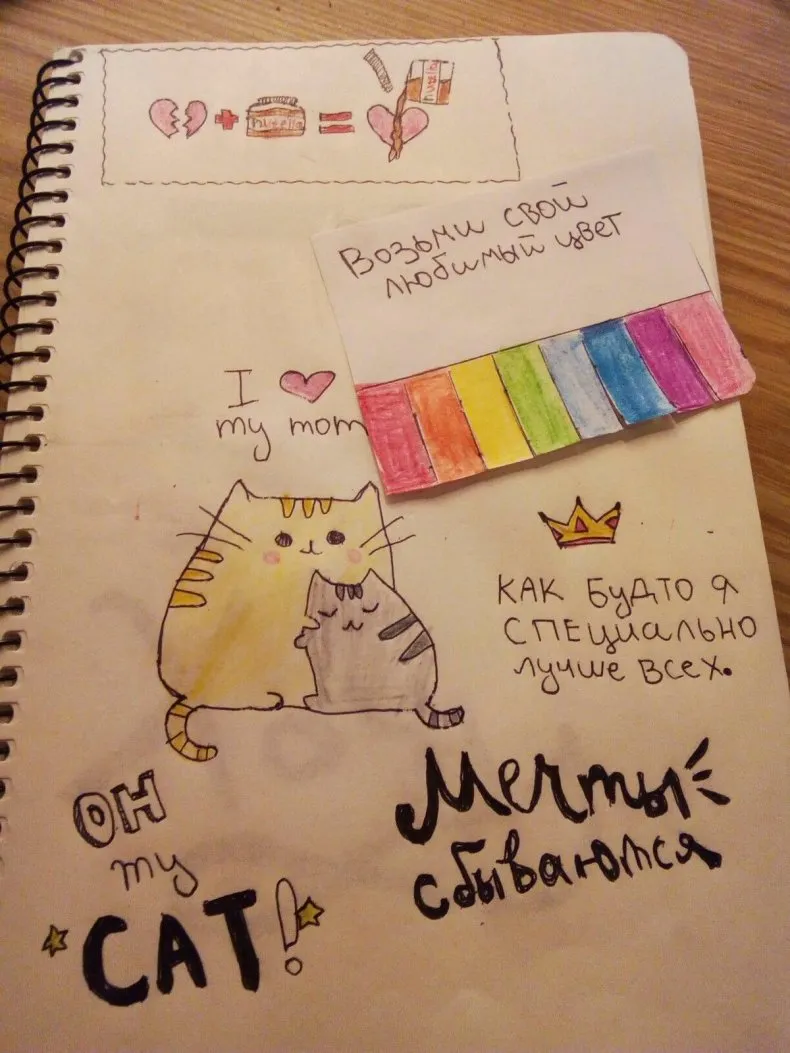 nutella
nutella
Возьми свой
любимый цвет
I
my mom
КАК БУДТО Я
СПЕЦИАЛЬНО
лучше ВСЕХ.
Мечты
сбываются
OH
my
CAT!